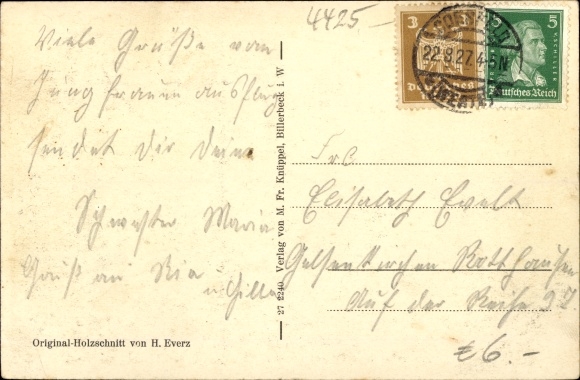 4425
Viele Grüße vom
Jungfrauenausflug
sendet Dir Deine
Schwester Maria
Gruß an Ria
u Cilla
Original-Holzschnitt von H. Everz
27 2240 Verlag von M. Fr. Knüppel, Billerbeck i. W
3
3
COESFELD
22.8.27.4-5N
(WESTF.)
5
F.v.SCHILLER
Deutsches Reich
Frl
Elisabeth Evelt
Gelsenkirchen Rotthausen
Auf der Reihe 27
€ 6.-